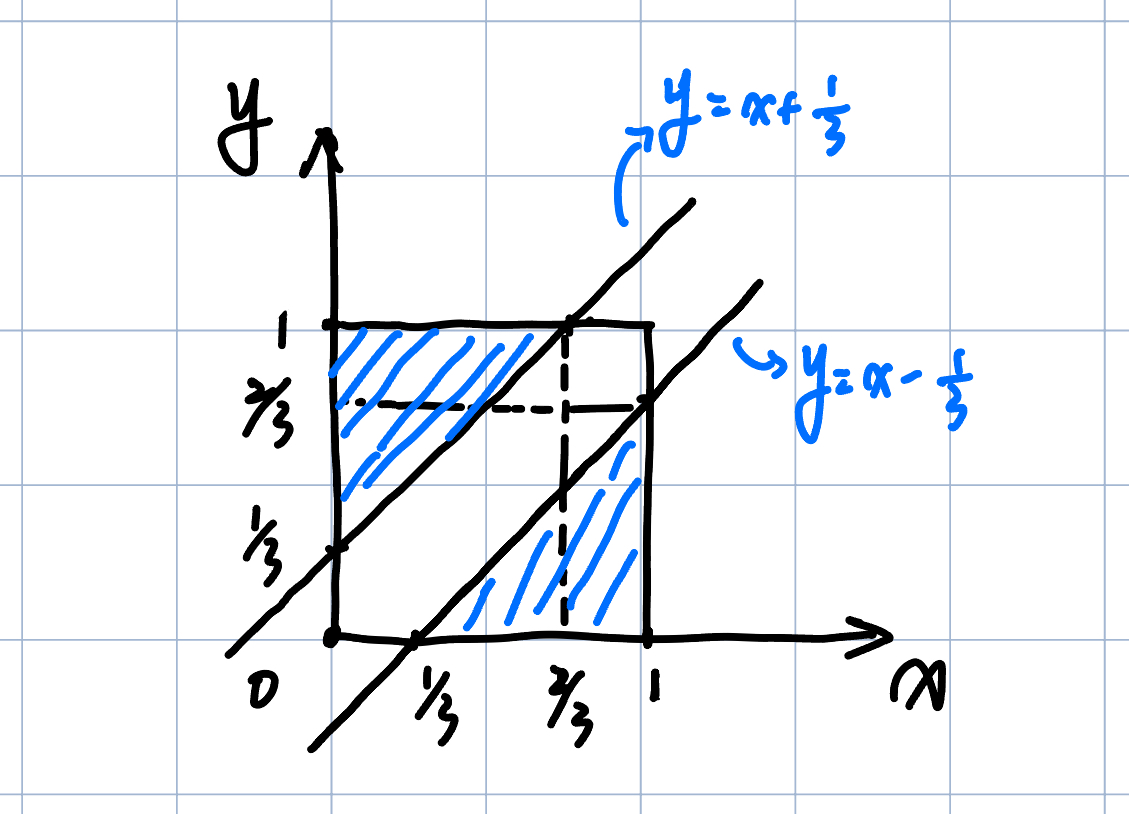 y
y = x + 1/3
1
y = x - 1/3
2/3
1/3
0
1/3
2/3
1
x